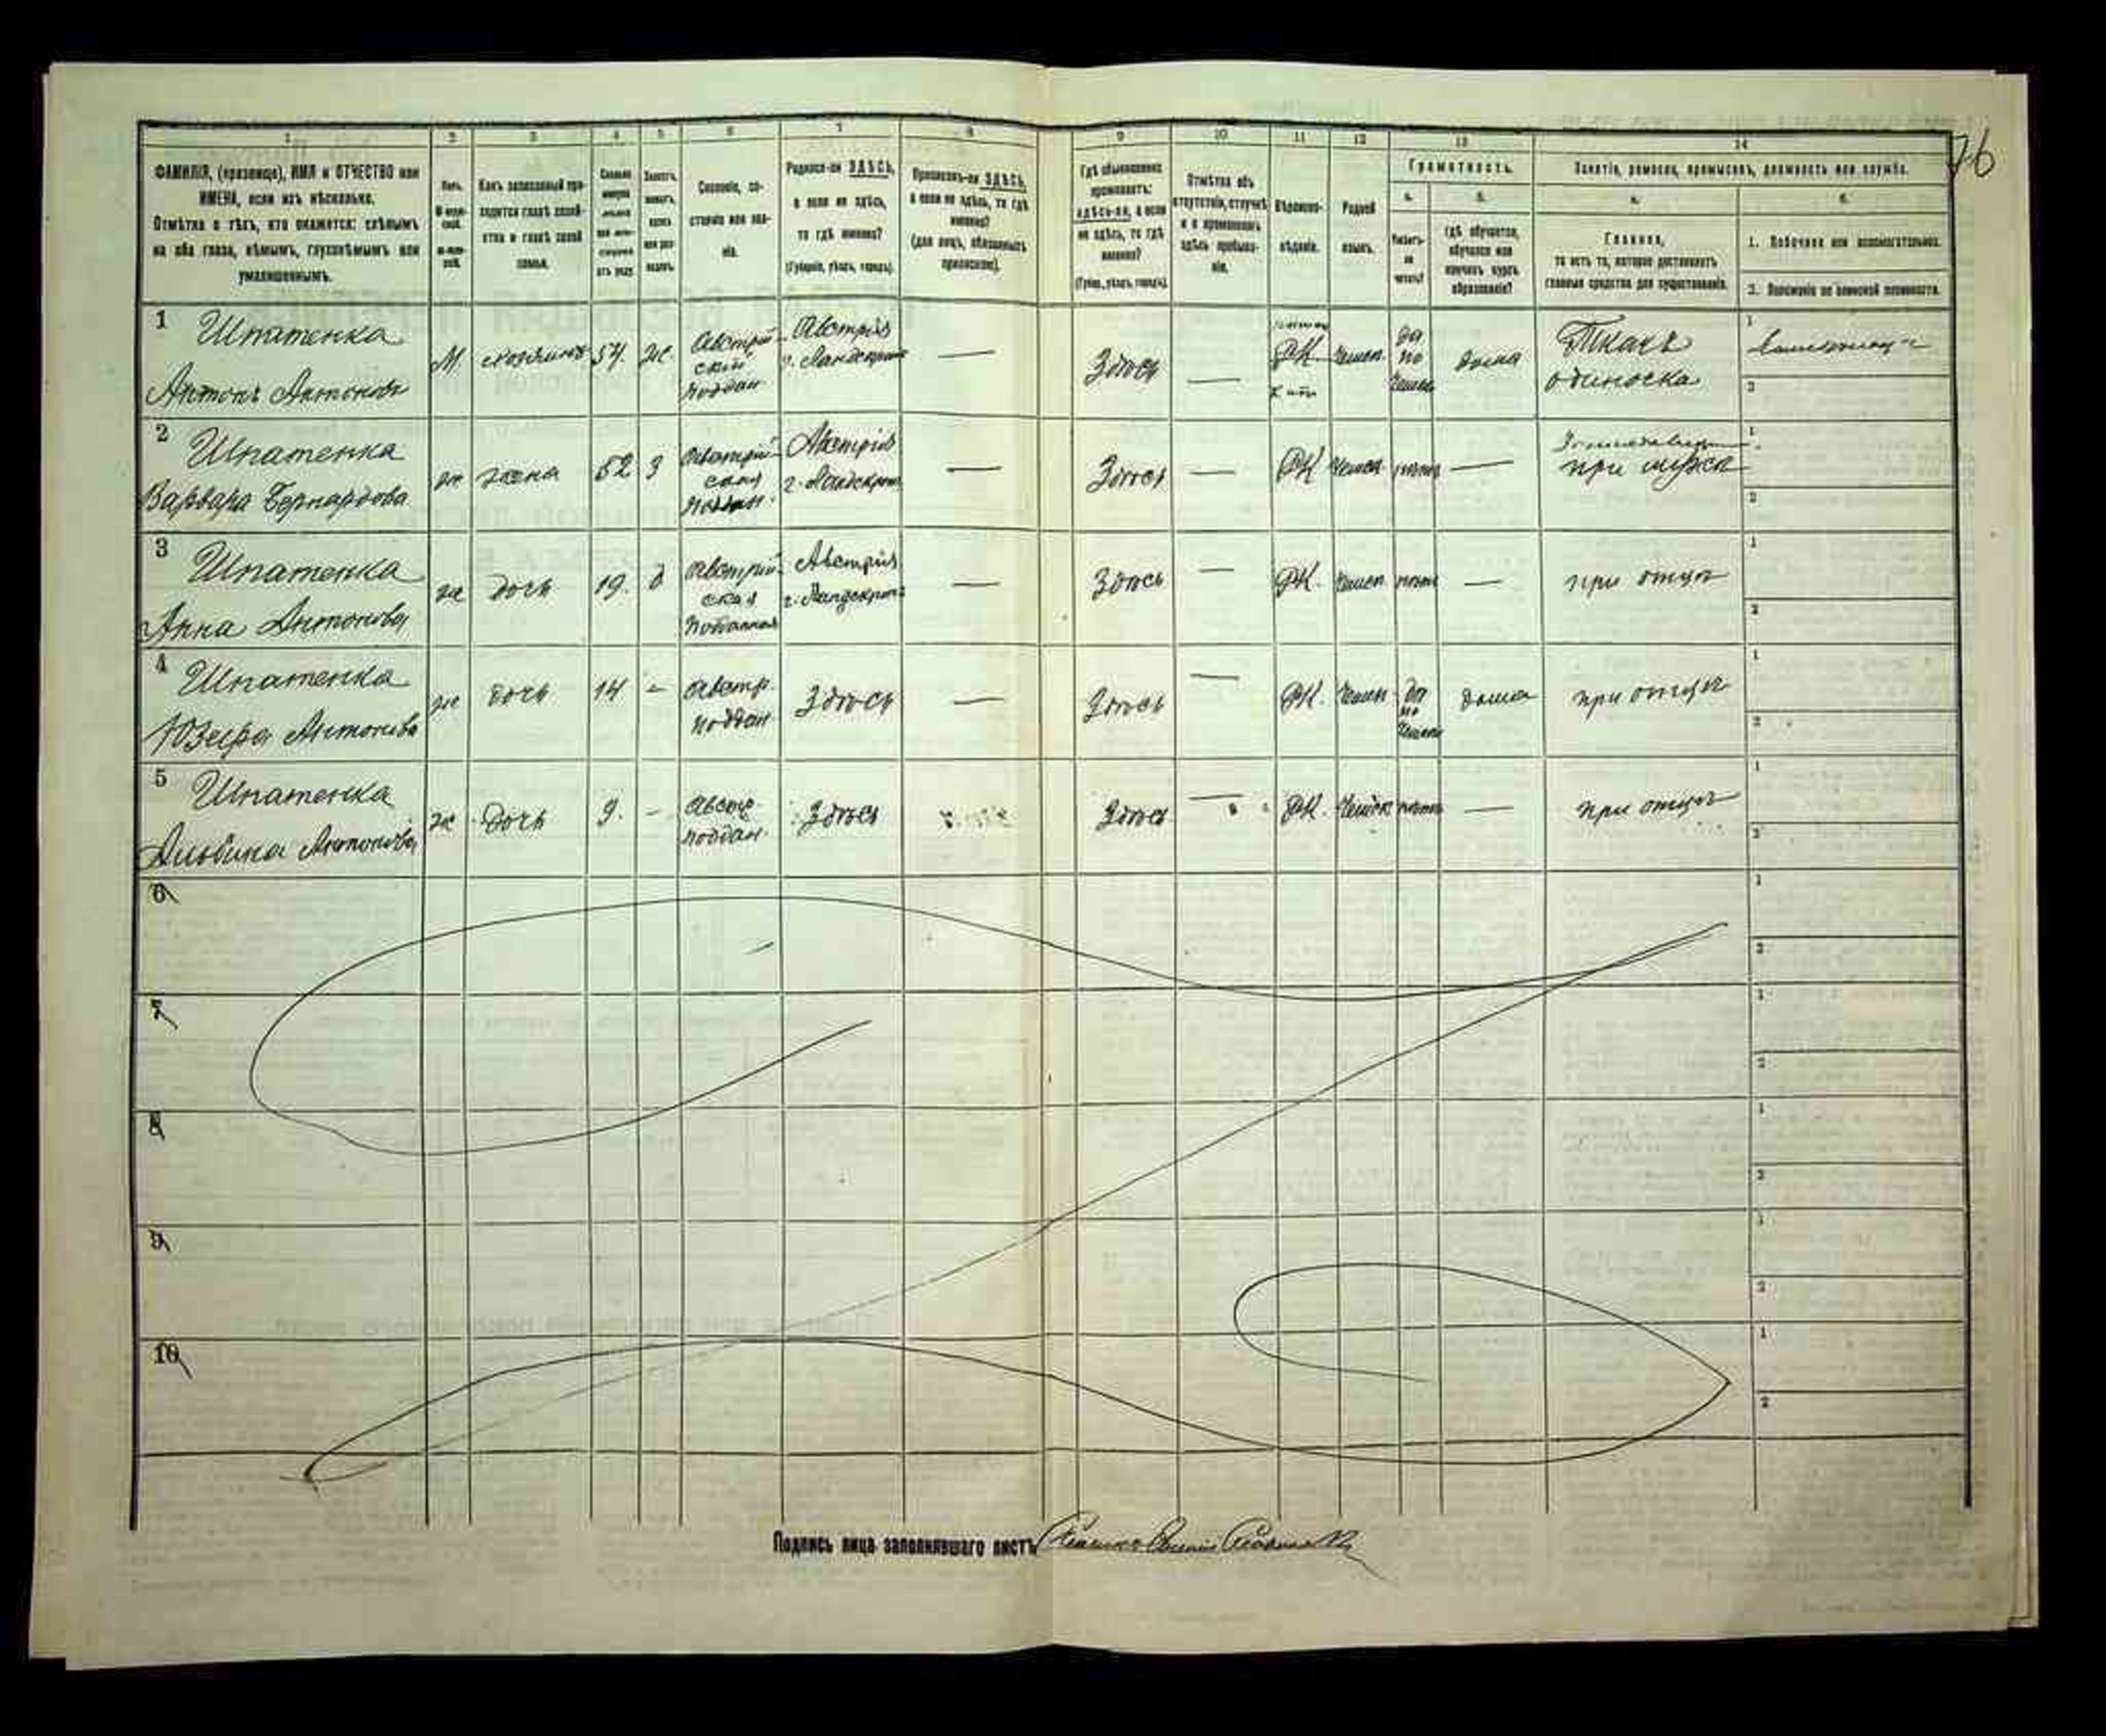 76
1 2 3 4 5 6 7 8 9 10 11 12 13 14
ФАМИЛІЯ, (прозвище), ИМЯ и ОТЧЕСТВО или
ИМЕНА, если ихъ нѣсколько.
Отмѣтка о тѣхъ, кто окажется: слѣпымъ
на оба глаза, нѣмымъ, глухонѣмымъ или
умалишеннымъ.
Полъ.
Какъ записанный при-
ходится главѣ хозяй-
ства и главѣ своей
семьи.
Сословіе, со-
стояніе или зва-
ніе.
Родился-ли ЗДѢСЬ,
а если не здѣсь,
то гдѣ именно?
(Губернія, уѣздъ, городъ).
Приписанъ-ли ЗДѢСЬ,
а если не здѣсь, то гдѣ
именно?
(для лицъ, обязанныхъ
припискою).
Гдѣ обыкновенно
проживаетъ:
здѣсь-ли, а если
не здѣсь, то гдѣ
именно?
(Губер., уѣздъ, городъ).
Отмѣтка объ
отсутствіи, отлучкѣ
и о временномъ
здѣсь пребыва-
ніи.
Вѣроиспо-
вѣданіе.
Родной
языкъ.
Грамотность.
а. б.
Умѣетъ-
ли
читать?
Гдѣ обучается,
обучался или
кончилъ курсъ
образованія?
Занятіе, ремесло, промыселъ, должность или служба.
а. б.
Главное,
то есть то, которое доставляетъ
главныя средства для существованія.
1. Побочное или вспомогательное.
2. Положеніе по воинской повинности.
1 Шпатенка
Антонъ Антоновъ
М. хозяинъ 54. Ж. Австрій-
скій
поддан.
Австрія
г. Ландскронъ
—
Здѣсь
—
РК.
Чешск.
да
по
Чешск
дома
Ткачъ
одиночка
1
2
2 Шпатенка
Варвара Бернардова
ж жена 52 З Австрій-
ская
поддан.
Австрія
г. Ландскронъ
—
Здѣсь
—
РК
Чешск
нѣтъ
—
при мужѣ
1
2
3 Шпатенка
Анна Антонова
ж дочь 19. д Австрій-
ская
подданная
Австрія
г. Ландскронъ
—
Здѣсь
—
РК.
Чешск
нѣтъ
—
при отцѣ
1
2
4 Шпатенка
Юзефа Антонова
ж дочь 14 - Австр.
поддан
Здѣсь
—
Здѣсь
—
РК.
Чешск
да
по
Чешск
дома
при отцѣ
1
2
5 Шпатенка
Альбина Антонова
ж дочь 9. - Австр.
поддан.
Здѣсь
Здѣсь
—
РК.
Чешск
нѣтъ
—
при отцѣ
1
2
6
1
2
7
1
2
8
1
2
9
1
2
10
1
2
Подпись лица заполнявшаго листъ